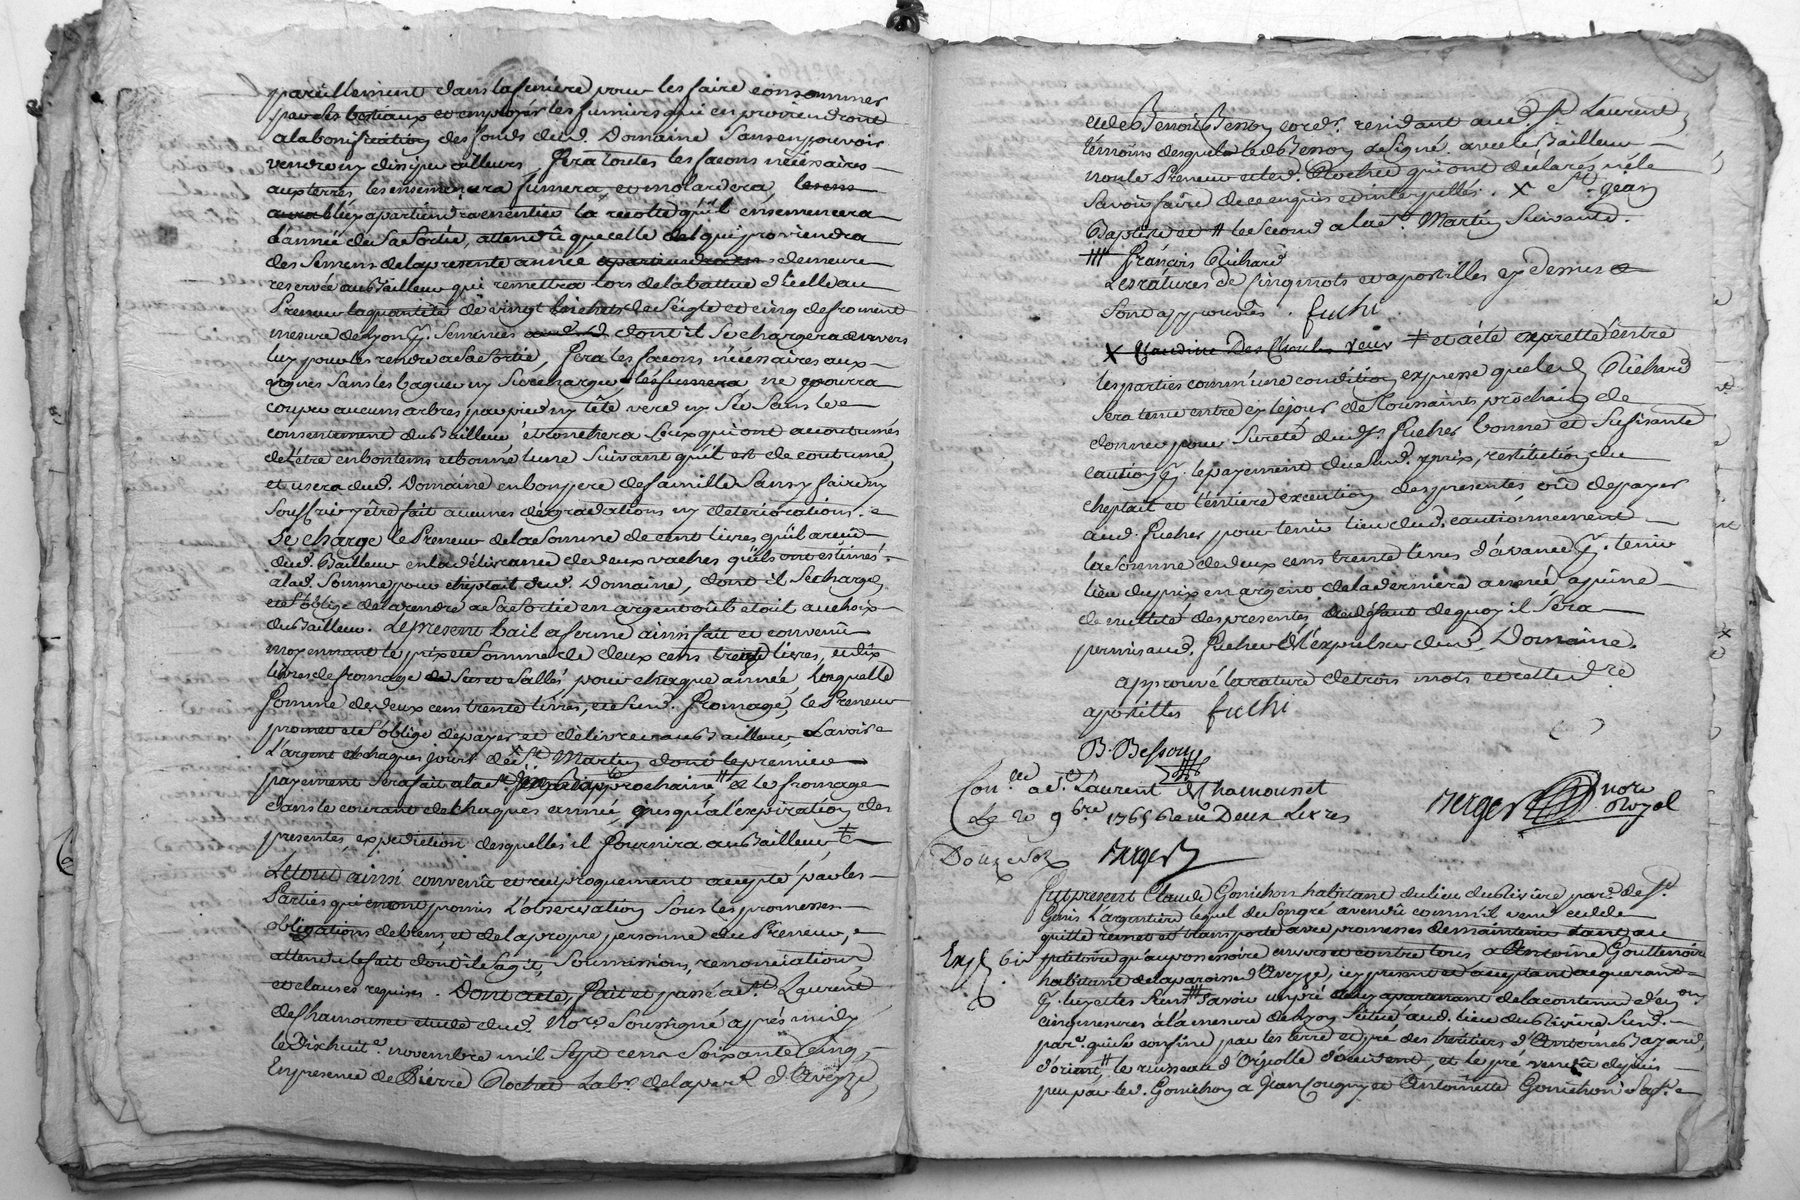 pareillement dans la feniere pour les faire consommer
par ses bestiaux et employer les fumiers qui en proviendront
a la bonification des fonds dud. Domaine Sans en pouvoir
vendre ny dissiper ailleurs, fera toutes les façons necessaires
aux terres, les ensemencera fumera, et
apartiendra en entier la recolte qu'il ensemencera
l'année de Sa Sortie, attendu que celle qui proviendra
des Semens de la presente année demeure
reservée au Bailleur qui remettra lors de la battue d'icelle au
Preneur la quantité de vingt bichets de Seigle et cinq de froment
mesure de Lyon p. Semences dont il Se chargera envers
luy pour les rendre a Sa Sortie, fera les façons necessaires aux
vignes Sans les Surcharger, ne pourra
couper aucuns arbres par pied ny tête verd ny Sec Sans le
consentement du Bailleur étronchera Ceux qui ont accoutumés
de l'être en bon tems et bonne lune Suivant qu'il est de coutume,
et usera dud. Domaine en bon pere de famille Sans y faire ny
Souffrir être fait aucunes dégradations ny deteriorations.
Se charge le Preneur de la Somme de cent livres qu'il a reçû
dud. Bailleur en la délivrance de deux vaches qu'ils ont estimés
a lad. Somme pour cheptail dud. Domaine, dont il Se charge,
et S'oblige de la rendre a Sa Sortie en argent ou betail au choix
du Bailleur. Le present bail a ferme ainsi fait et convenû
moyennant le prix et Somme de deux cens trente livres, et dix
livres de fromage pour chaque année, Laquelle
Somme de deux cens trente livres, et Susd. fromage, le Preneur
promet et S'oblige de payer et délivrer au Bailleur, Savoir
L'argent a chaques jours de X St. Martin dont le premier
payement Sera fait a la St. prochaine # & le fromage
dans le courant de chaques année, jusqu'a l'expiration des
presentes expedition desquelles il fournira au Bailleur,
Le tout ainsi convenû et reciproquement accepté par les
Parties qui en ont promis L'observation Sous les promesses
obligations de biens, et de la propre personne du Preneur,
attendu le fait dont il S'agit, Soumissions, renonciations,
et clauses requises. Dont acte, fait et passé a St. Laurent
de Chamousset etude dud. Nore. Soussigné après midy
le dixhuite. novembre mil Sept cens Soixante cinq,
En presence de Pierre Rochet Labr. de la par. d'Aveyze,
et de Benoit Besson cordr. residant aud. St. Laurent,
témoins desquels led. Besson a Signé avec le Bailleur
non le Preneur et led. Rochet qui ont déclarés ne le
Savoir faire de ce enquis et interpellés. X St. Jean
Baptiste et # le Second a lad. St. Martin Suivante.
François Richard
Les ratures de cinq mots et apostilles cy dessus
Sont approuvés. fuchi
X Claudine Des Veuv # et a été exprette entre
les parties comm'une condition expresse que led. Richard
Sera tenu entre cy et le jour de Toussaints prochain de
donner pour Sureté dud. Sr. Fucher bonne et Sufisante
caution p. le payement du Susd. prix, restitution du
cheptail et l'entiere execution des presentes ou de payer
aud. Fucher pour tenir lieu dud. cautionnement
la Somme de deux cens trente livres d'avance p. tenir
lieu du prix en argent de la derniere année a peine
de nullité des presentes, a deffaut de quoy il Sera
permis aud. Fucher de l'expulser dud. Domaine.
approuvé la rature de trois mots et
apostilles fuchi
B. Besson
Con.lé a St. Laurent de Chamousset
Le 20 9bre 1765 Recu Deux Livres
Douze Sols Berger
Berger nore Royal
Exp. bis
Fut present Claude Gonichon habitant du lieu du Rivière par. de St.
Genis L'argentiere lequel de Son gré a vendu comm'il vend cedde
quitte remet et transporte avec promesses de maintenir tant au
petitoire qu'au possessoire envers et contre tous, a Antoine Gouttenoire
habitant de la paroisse d'Aveyze, icy present et acceptant acquerant
p. luy et les Siens Savoir un pré de la contenue d'en.on
cinq mesures à la mesure de Lyon Situé aud. lieu du Rivière Susd.
par. qui Se confine par les terre et pré des heritiers d'Antoine Bazard,
d'orient # le ruisseau d'Orjolle d'occident, et le pré vendu depuis
peu par led. Gonichon a Jean et Antoinette Gonichon Sa fe.